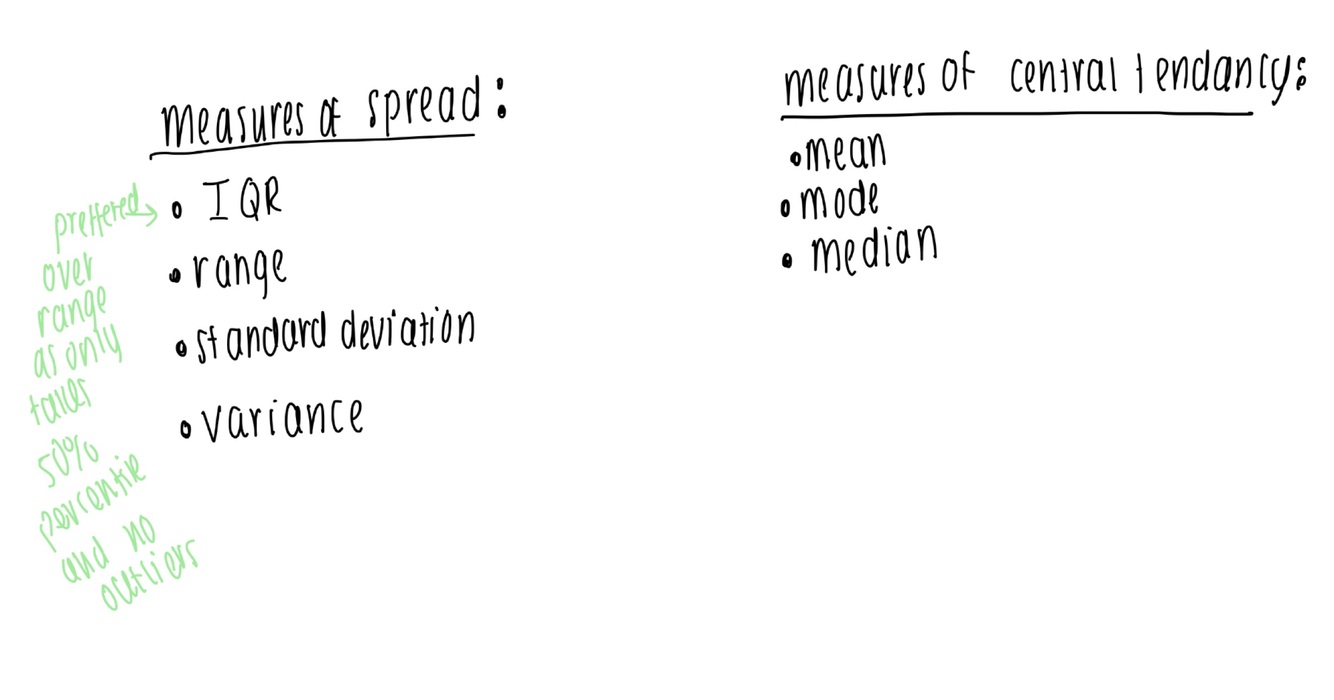 measures of spread:
• IQR
• range
• standard deviation
• variance
preffered →
over
range
as only
takes
50%
percentile
and no
outliers
measures of central tendancy:
• mean
• mode
• median